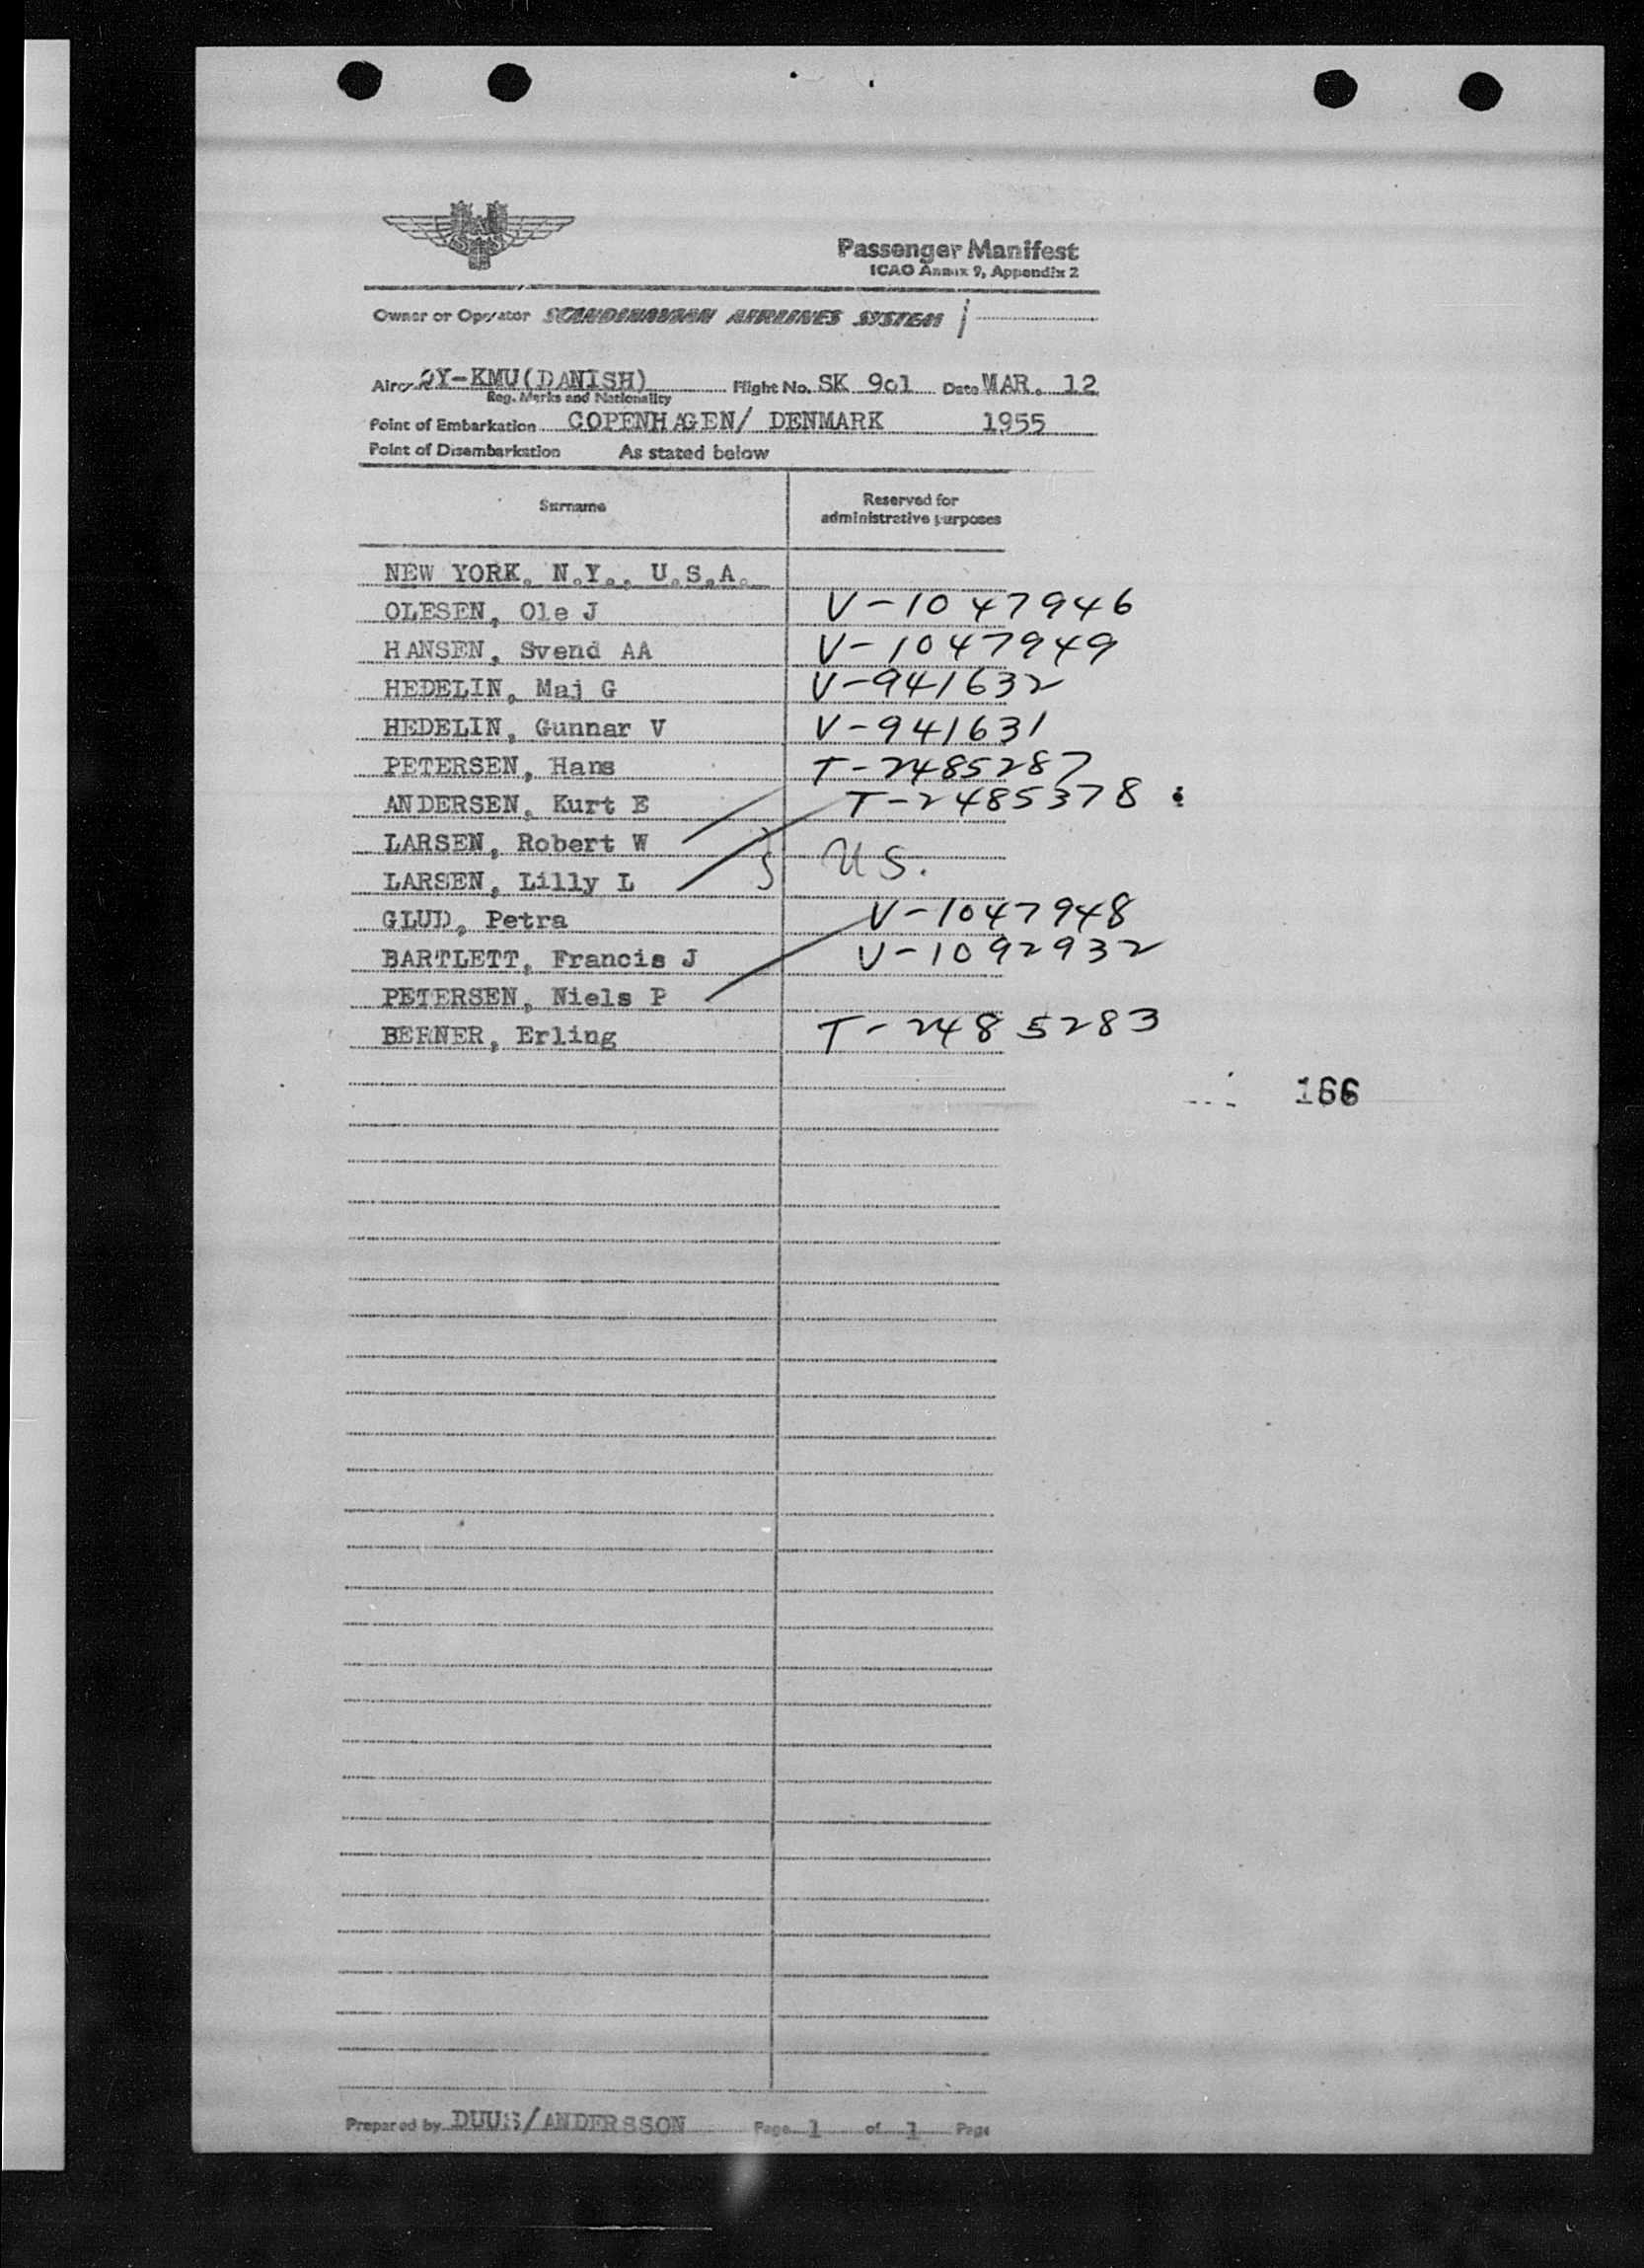 SAS
Passenger Manifest
ICAO Annex 9, Appendix 2
Owner or Operator SCANDINAVIAN AIRLINES SYSTEM
OY-KMU(DANISH) Flight No. SK 901 Date MAR. 12
Reg. Marks and Nationality
Point of Embarkation COPENHAGEN/ DENMARK 1955
Point of Disembarkation As stated below
Surname Reserved for
administrative purposes
NEW YORK, N.Y., U.S.A.
OLESEN, Ole J V-1047946
HANSEN, Svend AA V-1047949
HEDELIN, Maj G V-941632
HEDELIN, Gunnar V V-941631
PETERSEN, Hans T-2485287
ANDERSEN, Kurt E T-2485378
LARSEN, Robert W
LARSEN, Lilly L } US.
GLUD, Petra V-1047948
BARTLETT, Francis J V-1092932
PETERSEN, Niels P
BERNER, Erling T-2485283
166
Prepared by DUUS/ANDERSSON Page 1 of 1 Page